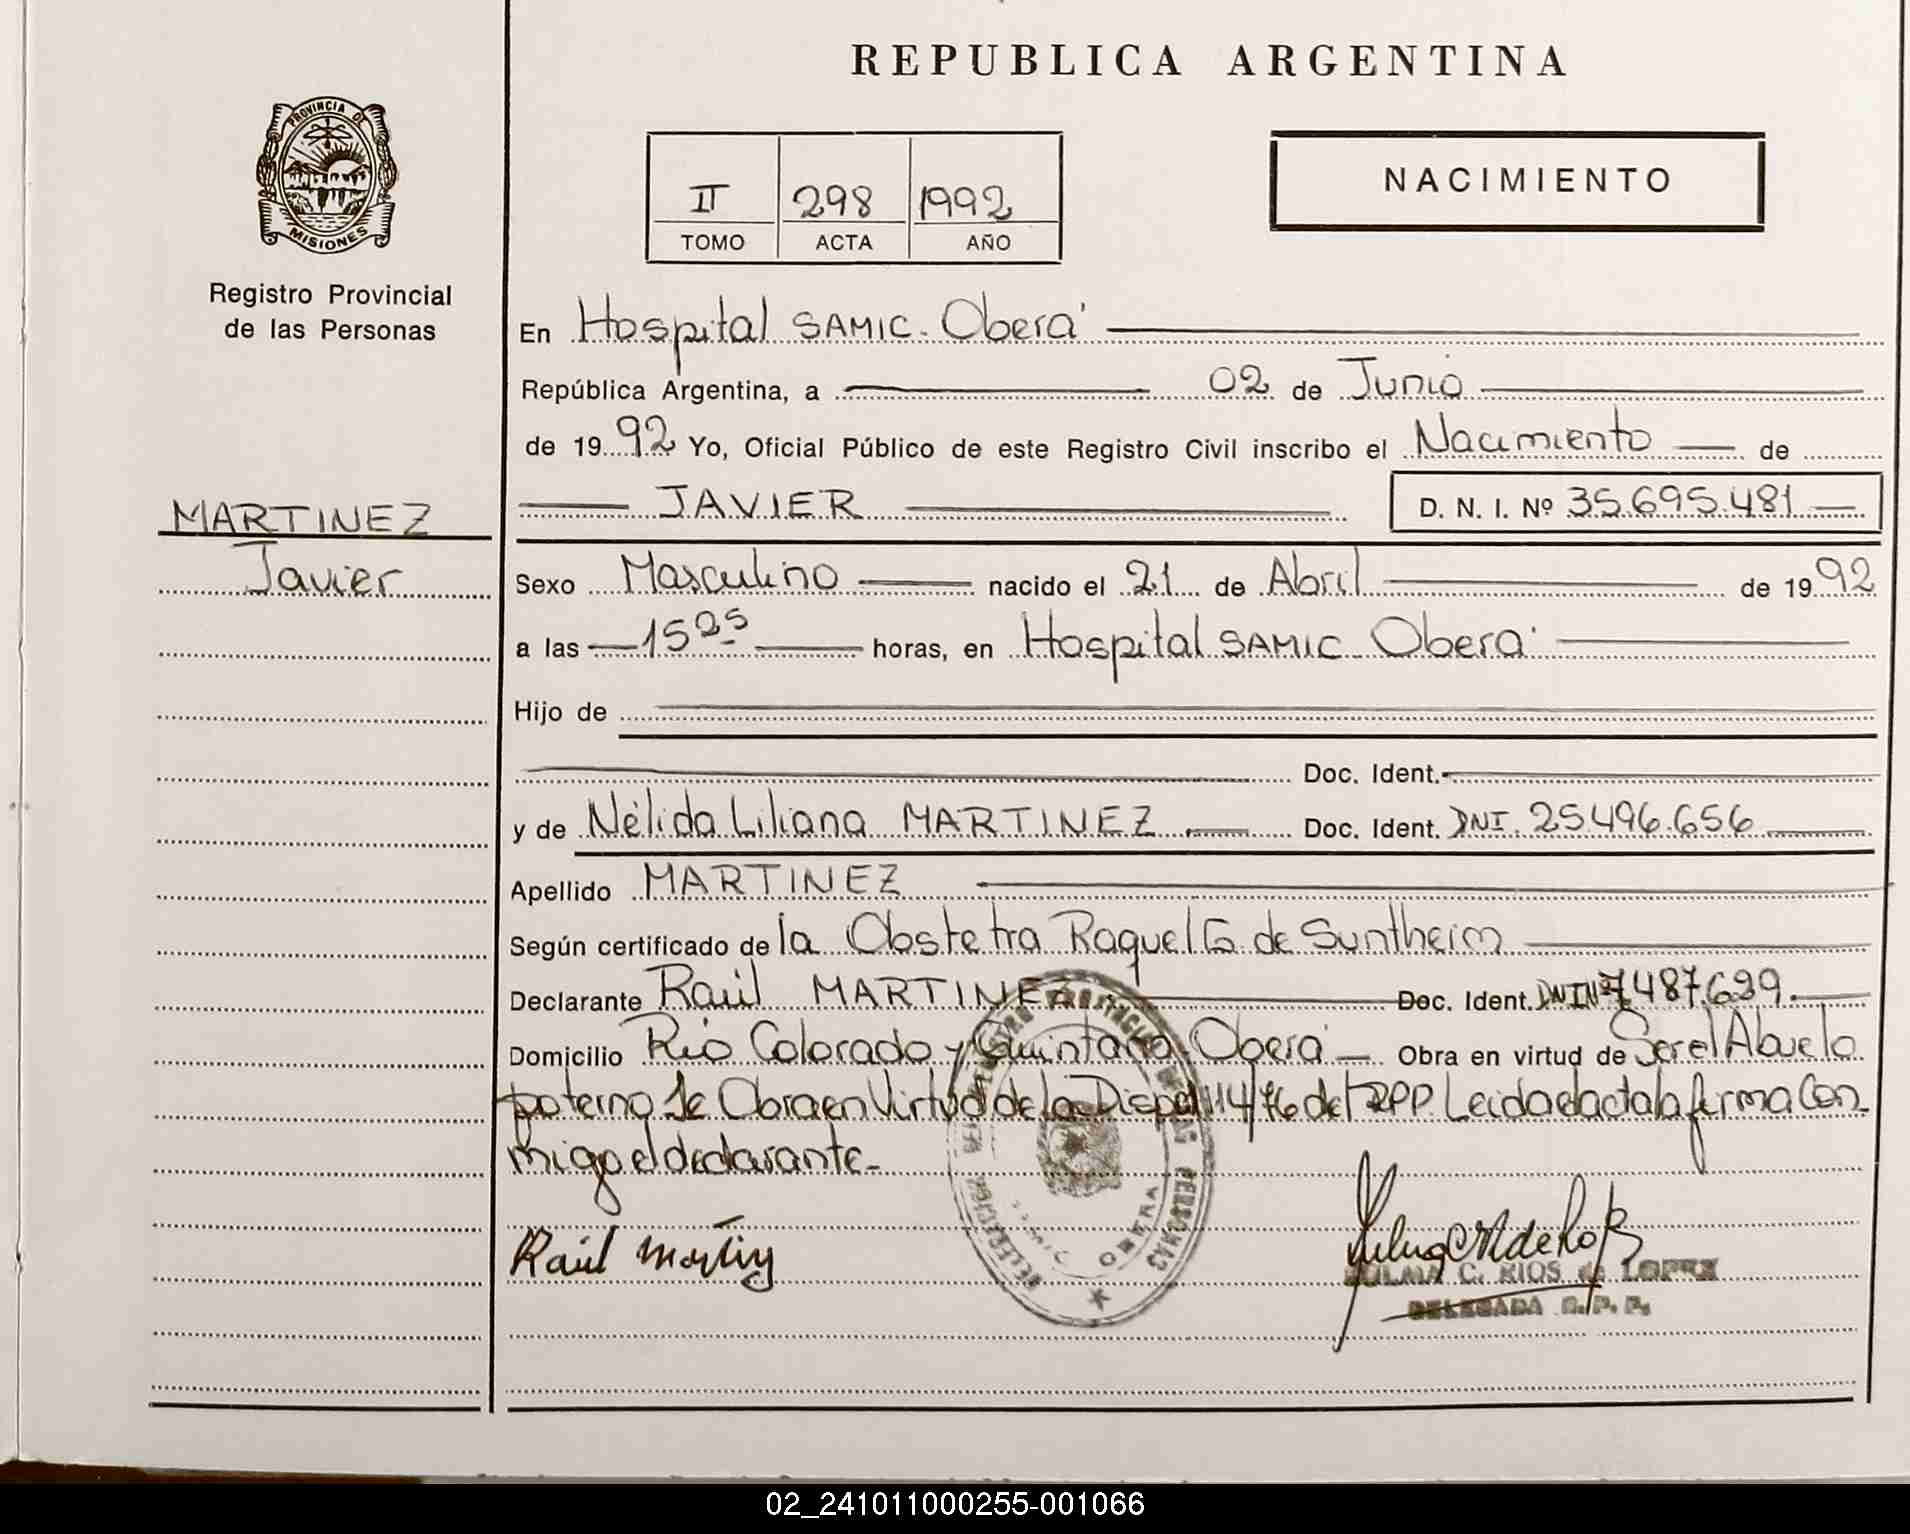 REPUBLICA ARGENTINA
PROVINCIA DE
MISIONES
Registro Provincial
de las Personas
II 298 1992
TOMO ACTA AÑO
NACIMIENTO
En Hospital SAMIC - Oberá
República Argentina, a 02 de Junio
de 1992 Yo, Oficial Público de este Registro Civil inscribo el Nacimiento de
JAVIER D. N. I. Nº 35.695.481
MARTINEZ
Javier
Sexo Masculino nacido el 21 de Abril de 1992
a las 15 25 horas, en Hospital SAMIC - Oberá
Hijo de
Doc. Ident.
y de Nélida Liliana MARTINEZ Doc. Ident. DNI. 25.496.656
Apellido MARTINEZ
Según certificado de la Obstetra Raquel G. de Suntheim
Declarante Raúl MARTINEZ Doc. Ident. DNI Nº 7.487.699.
Domicilio Río Colorado y Quintana, Oberá Obra en virtud de Ser el Abuelo
paterno Se Obra en Virtud de la Dispo 114/76 del RPP. Leida el acta la firma Con
migo el declarante -
Raúl Martinez
ZULMA C. RIOS de LOPEZ
DELEGADA R. P. P.
OBERA
02_241011000255-001066